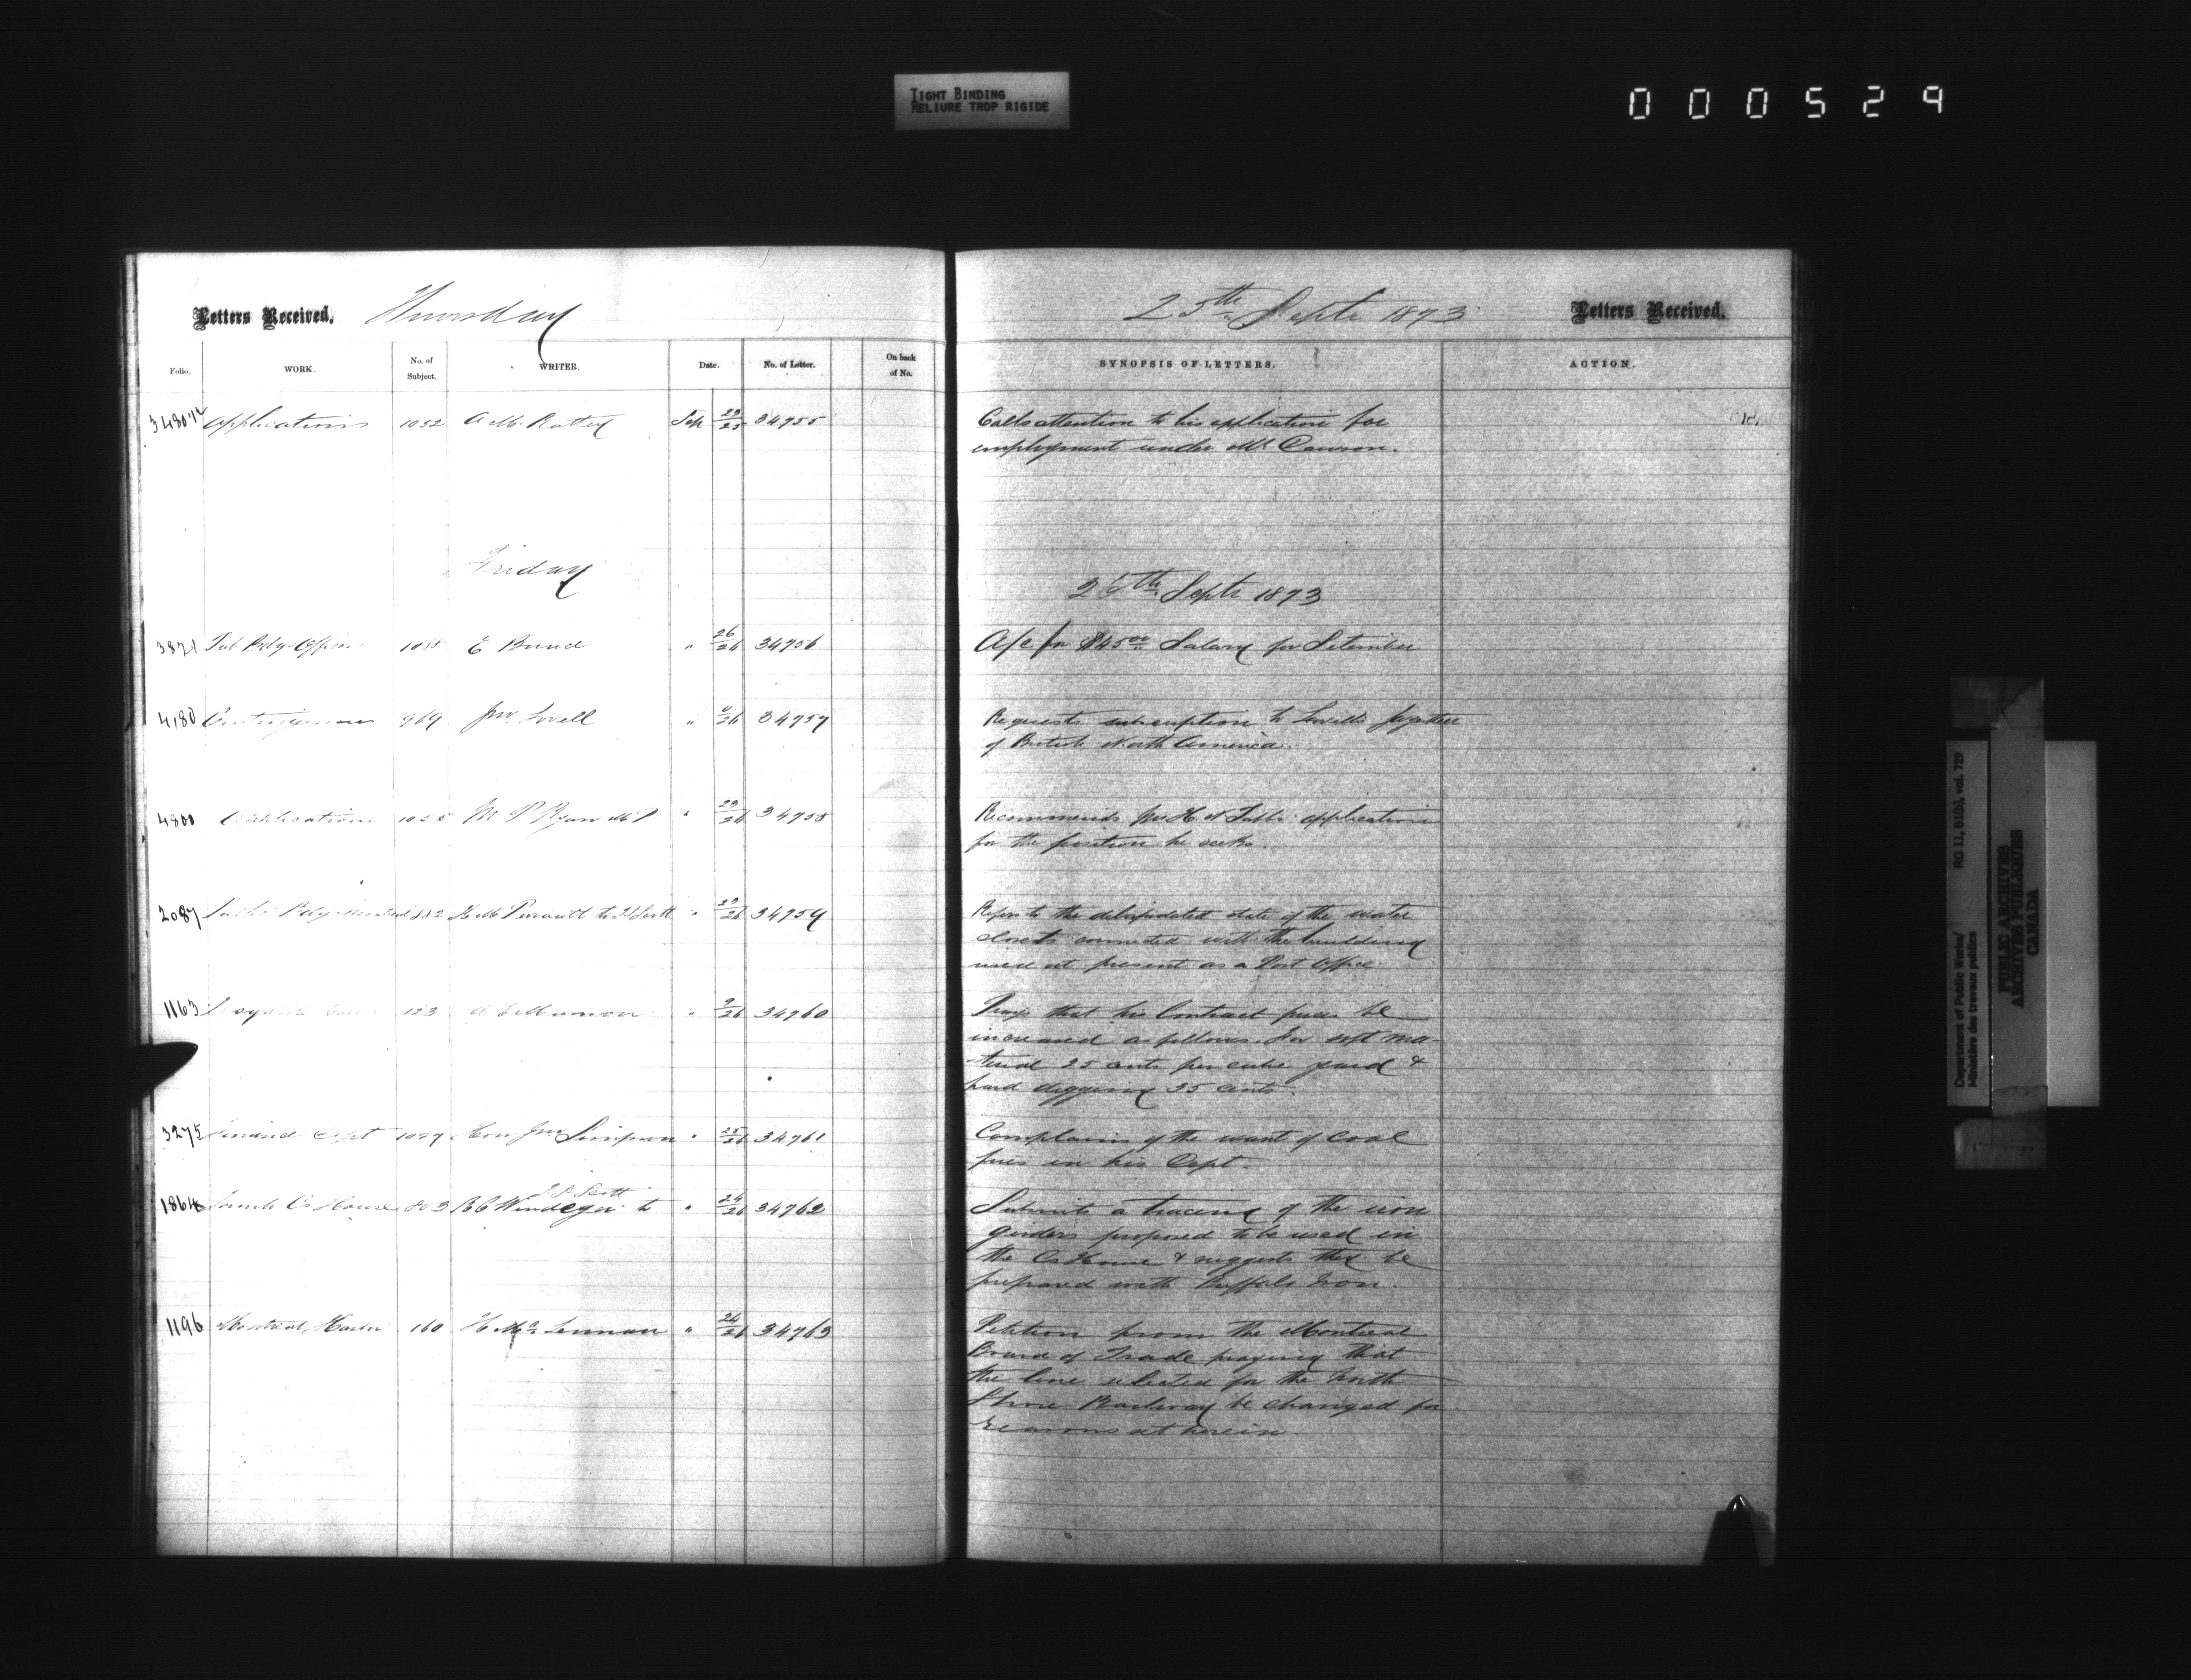 TIGHT BINDING
RELIURE TROP RIGIDE
000529
Letters Received. Thursday
25th Septr 1873 Letters Received.
Folio. WORK. No. of Subject. WRITER. Date. No. of Letter. On back of No.
SYNOPSIS OF LETTERS. ACTION.
Applications 1052 A. M. Rattey Sep 23/25 34755
Calls attention to his application for
employment under Mr
Friday
26th Septr 1873
3871 Pub Bdgs Offices 1058 E " 26/26 34756
A/c for $45.00 Salary for Setember
4180 Contingencies 969 Jno Lovell " /26 34757
Requests subscription to Lovells
of British North America.
4800 Application 1055 M P Ryan M P " 23/26 34758
Recommends Jno H N application
for the position he seeks.
2087 Public Bdgs Montreal 882 H M Perrault to T S Scott " 23/26 34759
Refers to the delapidated state of the water
closets connected with the building
used at present as a Post Office
1163 123 A " 9/26 34760
Prays that his Contract prices be
increased as follows. For soft ma-
-terial 25 cents per cubic yard &
hard digging 35 cents.
3275 Dept Hon Jno Simpson " 25/26 34761
Complains of the want of coal
fires in his Dept.
T. S. Scott
1864 Toronto Cs House 803 R C Windeyer to " 24/26 34762
Submits a tracing of the iron
girders proposed to be used in
the Cs House & suggests they be
prepared with Buffalo Iron.
1196 Montreal Harbr 160 H McLennan " 24/26 34763
Petition from the Montreal
Board of Trade praying that
the line selected for the North
Shore Railway be changed for
reasons set herein.
Department of Public Works/
Ministère des travaux publics
RG 11, B1(b), vol. 729
PUBLIC ARCHIVES
ARCHIVES PUBLIQUES
CANADA